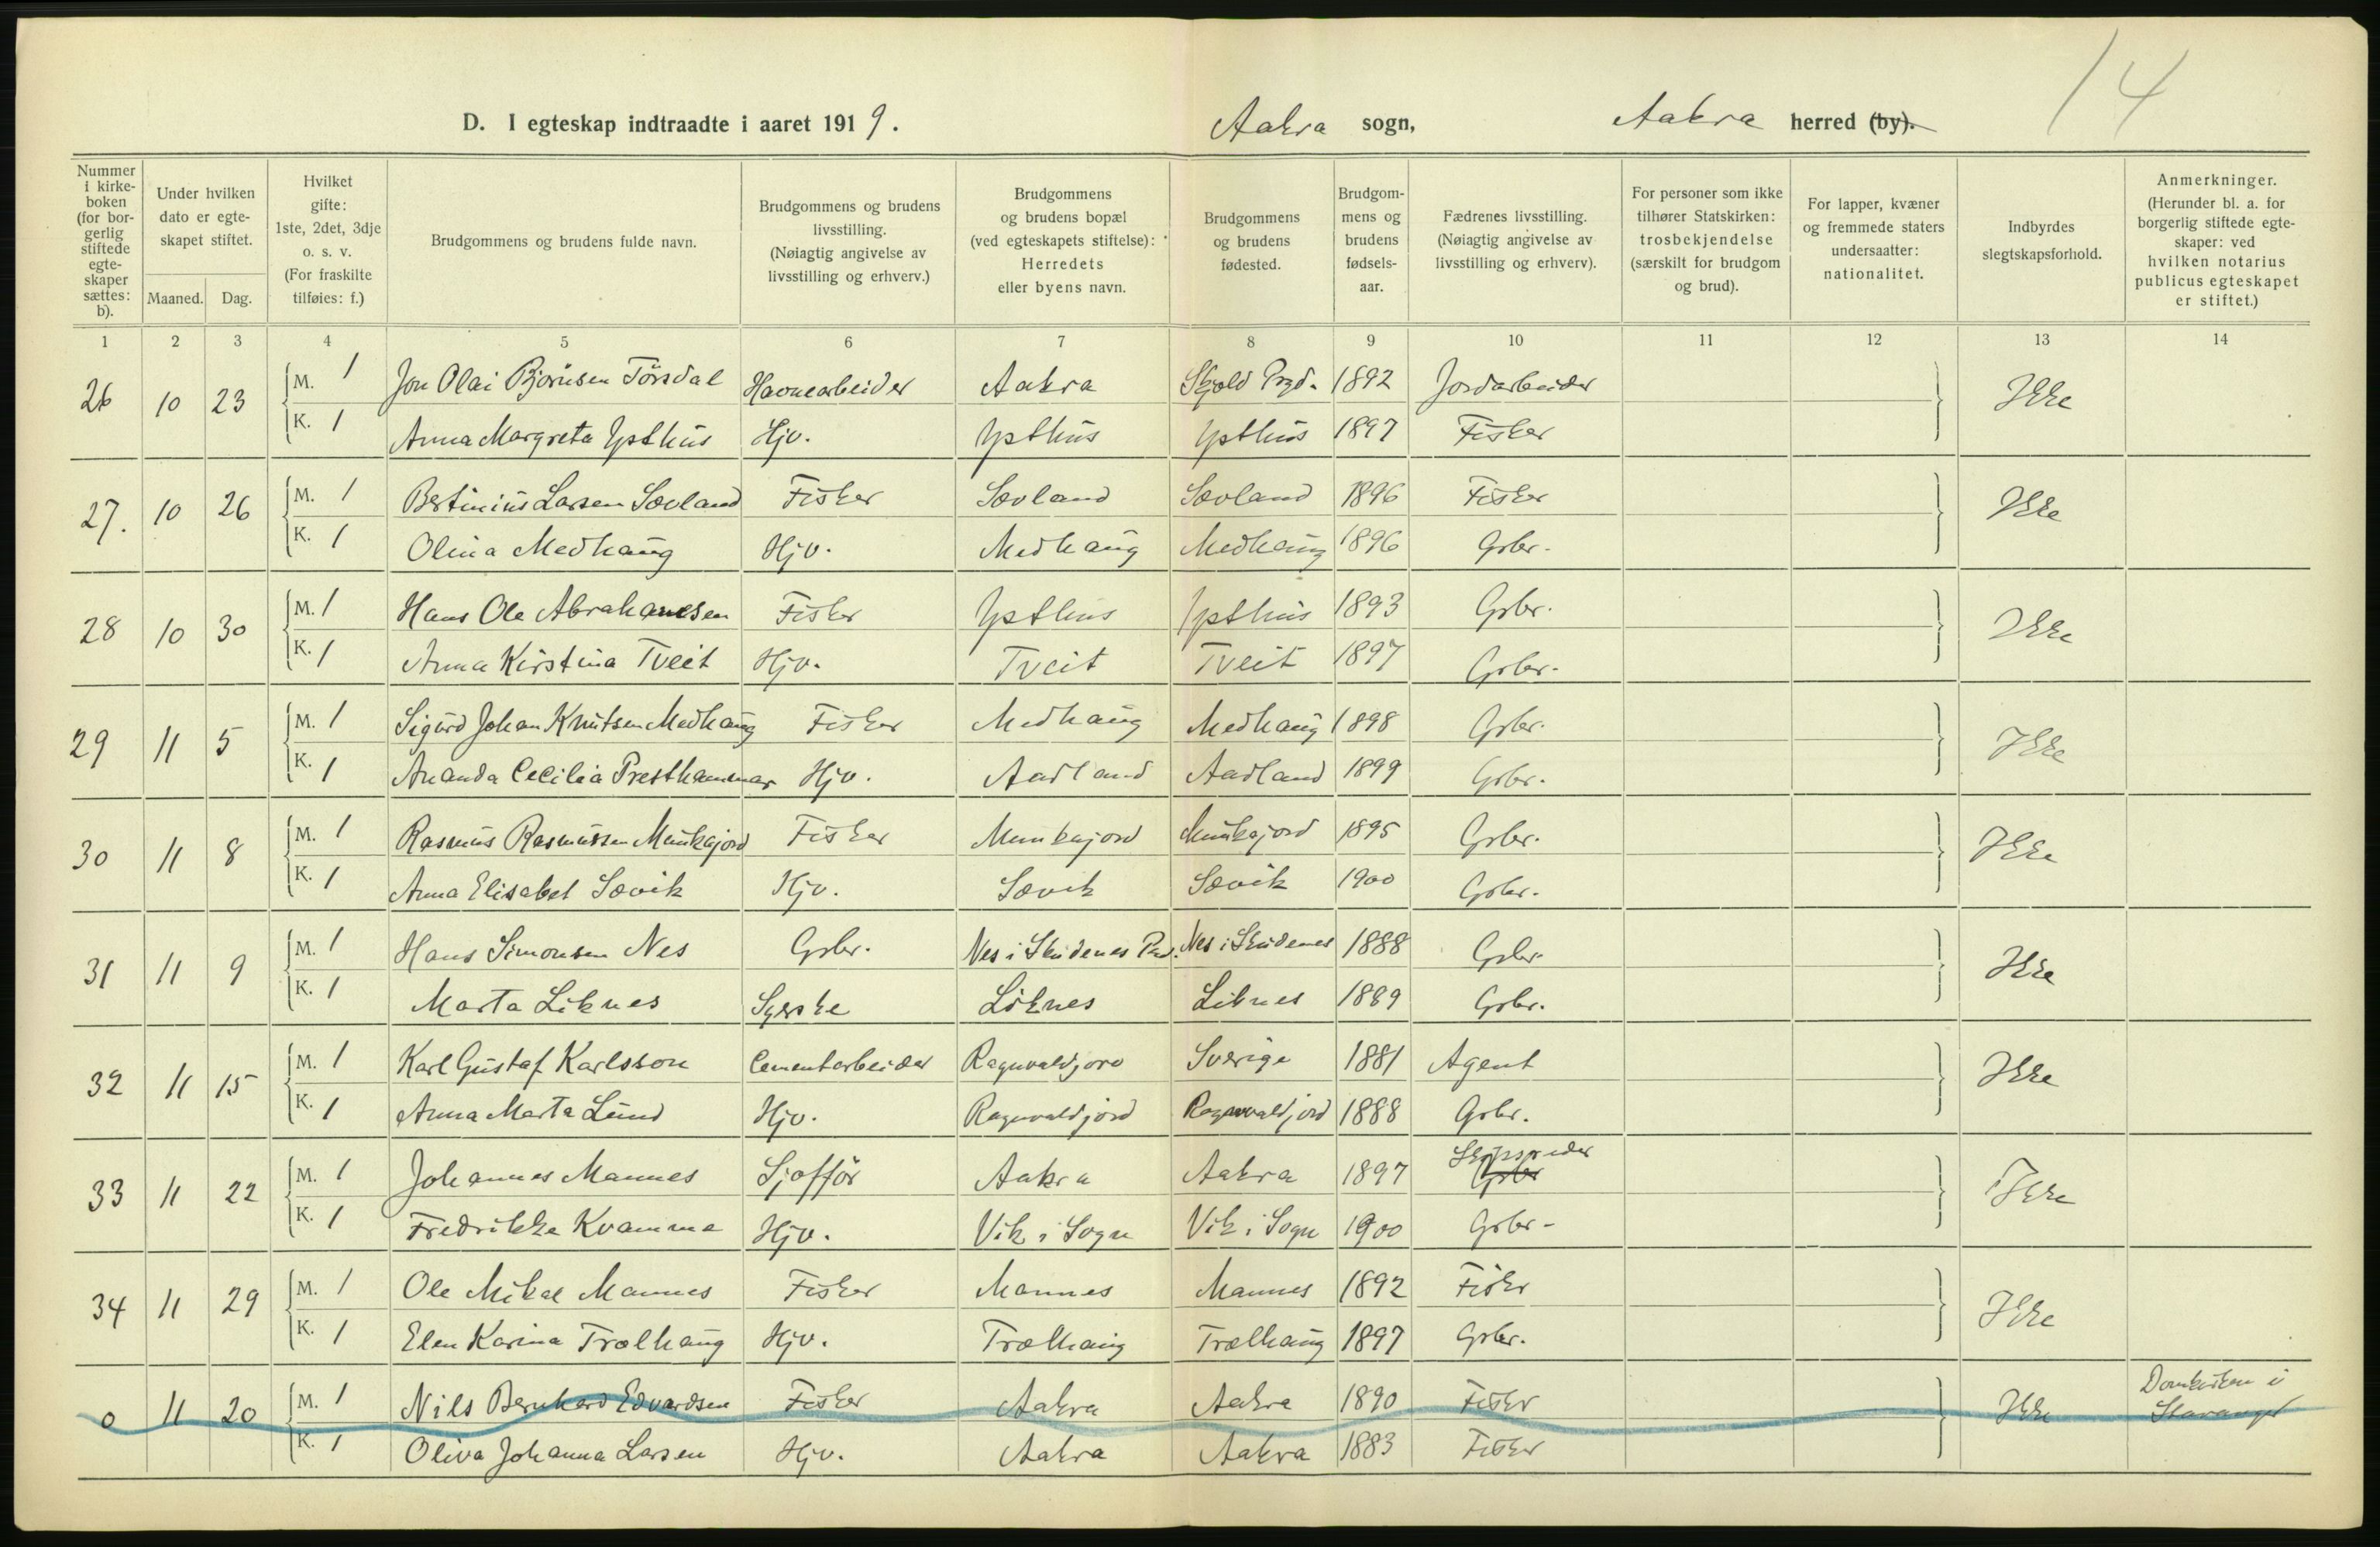 14
D. I egteskap indtraadte i aaret 1919. Aakra sogn, Aakra herred (by).
Nummer i kirke-boken (for bor-gerlig stiftede egte-skaper sættes: b).
Under hvilken dato er egte-skapet stiftet.
Maaned. Dag.
Hvilket gifte: 1ste, 2det, 3dje o. s. v. (For fraskilte tilføies: f.)
Brudgommens og brudens fulde navn.
Brudgommens og brudens livsstilling. (Nøiagtig angivelse av livsstilling og erhverv.)
Brudgommens og brudens bopæl (ved egteskapets stiftelse): Herredets eller byens navn.
Brudgommens og brudens fødested.
Brudgom-mens og brudens fødsels-aar.
Fædrenes livsstilling. (Nøiagtig angivelse av livsstilling og erhverv).
For personer som ikke tilhører Statskirken: trosbekjendelse (særskilt for brudgom og brud).
For lapper, kvæner og fremmede staters undersaatter: nationalitet.
Indbyrdes slegtskapsforhold.
Anmerkninger. (Herunder bl. a. for borgerlig stiftede egte-skaper: ved hvilken notarius publicus egteskapet er stiftet.)
1 2 3 4 5 6 7 8 9 10 11 12 13 14
26 10 23 M. 1 Jon Olai Bjørnsen Törsdal Havnearbeider Aakra Skjold Prgd. 1892 Jordarbeider Ikke
K. 1 Anna Margreta Ysthus Hjv. Ysthus Ysthus 1897 Fisker
27. 10 26 M. 1 Bertinius Larsen Sævland Fisker Sævland Sævland 1896 Fisker Ikke
K. 1 Olina Medhaug Hjv. Medhaug Medhaug 1896 Grbr.
28 10 30 M. 1 Hans Ole Abrahamsen Fisker Ysthus Ysthus 1893 Grbr. Ikke
K. 1 Anna Kirstina Tveit Hjv. Tveit Tveit 1897 Grbr.
29 11 5 M. 1 Sigurd Johan Knutsen Medhaug Fisker Medhaug Medhaug 1898 Grbr. Ikke
K. 1 Ananda Cecilia Presthammar Hjv. Aadland Aadland 1899 Grbr.
30 11 8 M. 1 Rasmus Rasmussen Munkajord Fisker Munkajord Munkajord 1895 Grbr. Ikke
K. 1 Anna Elisabet Sævik Hjv. Sævik Sævik 1900 Grbr.
31 11 9 M. 1 Hans Simonsen Nes Grbr. Nes i Skudenes Pgd. Nes i Skudenes 1888 Grbr. Ikke
K. 1 Marta Liknes Syerske Liknes Liknes 1889 Grbr.
32 11 15 M. 1 Karl Gustaf Karlsson Cementarbeider Ragnvaldjord Sverige 1881 Agent Ikke
K. 1 Anna Marta Lund Hjv. Ragnvaldjord Ragnvaldjord 1888 Grbr.
33 11 22 M. 1 Johannes Mannes Sjofför Aakra Aakra 1897 Skipsreder Grbr Ikke
K. 1 Fredrikke Kvamme Hjv. Vik i Sogn Vik i Sogn 1900 Grbr.
34 11 29 M. 1 Ole Mikal Mannes Fisker Mannes Mannes 1892 Fisker Ikke
K. 1 Elen Karina Trælhaug Hjv. Trælhaug Trælhaug 1897 Grbr.
0 11 20 M. 1 Nils Bernhard Edvardsen Fisker Aakra Aakra 1890 Fisker Ikke Domkirken i Stavanger
K. 1 Oliva Johanna Larsen Hjv. Aakra Aakra 1883 Fisker